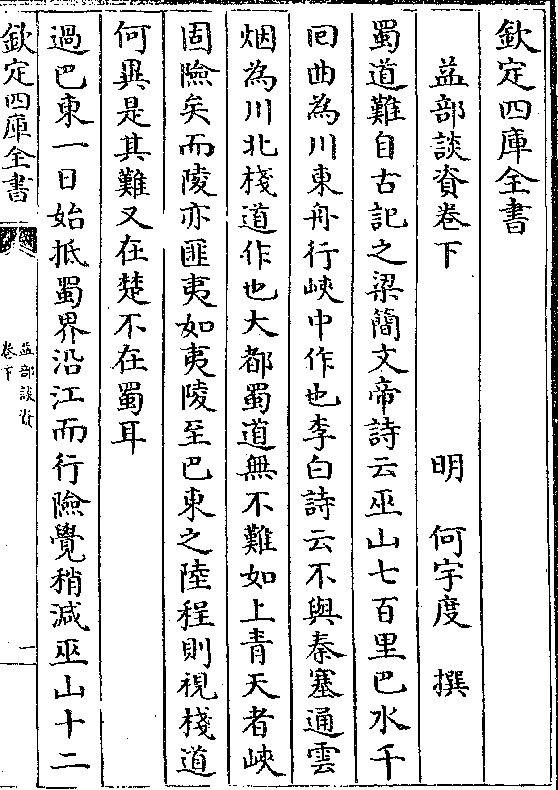 欽定四庫全書
益部談資卷下
明 何宇度 撰
蜀道難自古記之梁簡文帝詩云巫山七百里巴水千
回曲為川東舟行峽中作也李白詩云不與秦塞通雲
烟為川北棧道作也大都蜀道無不難如上青天者峽
固險矣而陵亦匪夷如夷陵至巴東之陸程則視棧道
何異是其難又在楚不在蜀耳
過巴東一日始抵蜀界沿江而行險覺稍減巫山十二
欽定四庫全書
益部談資
卷下
一